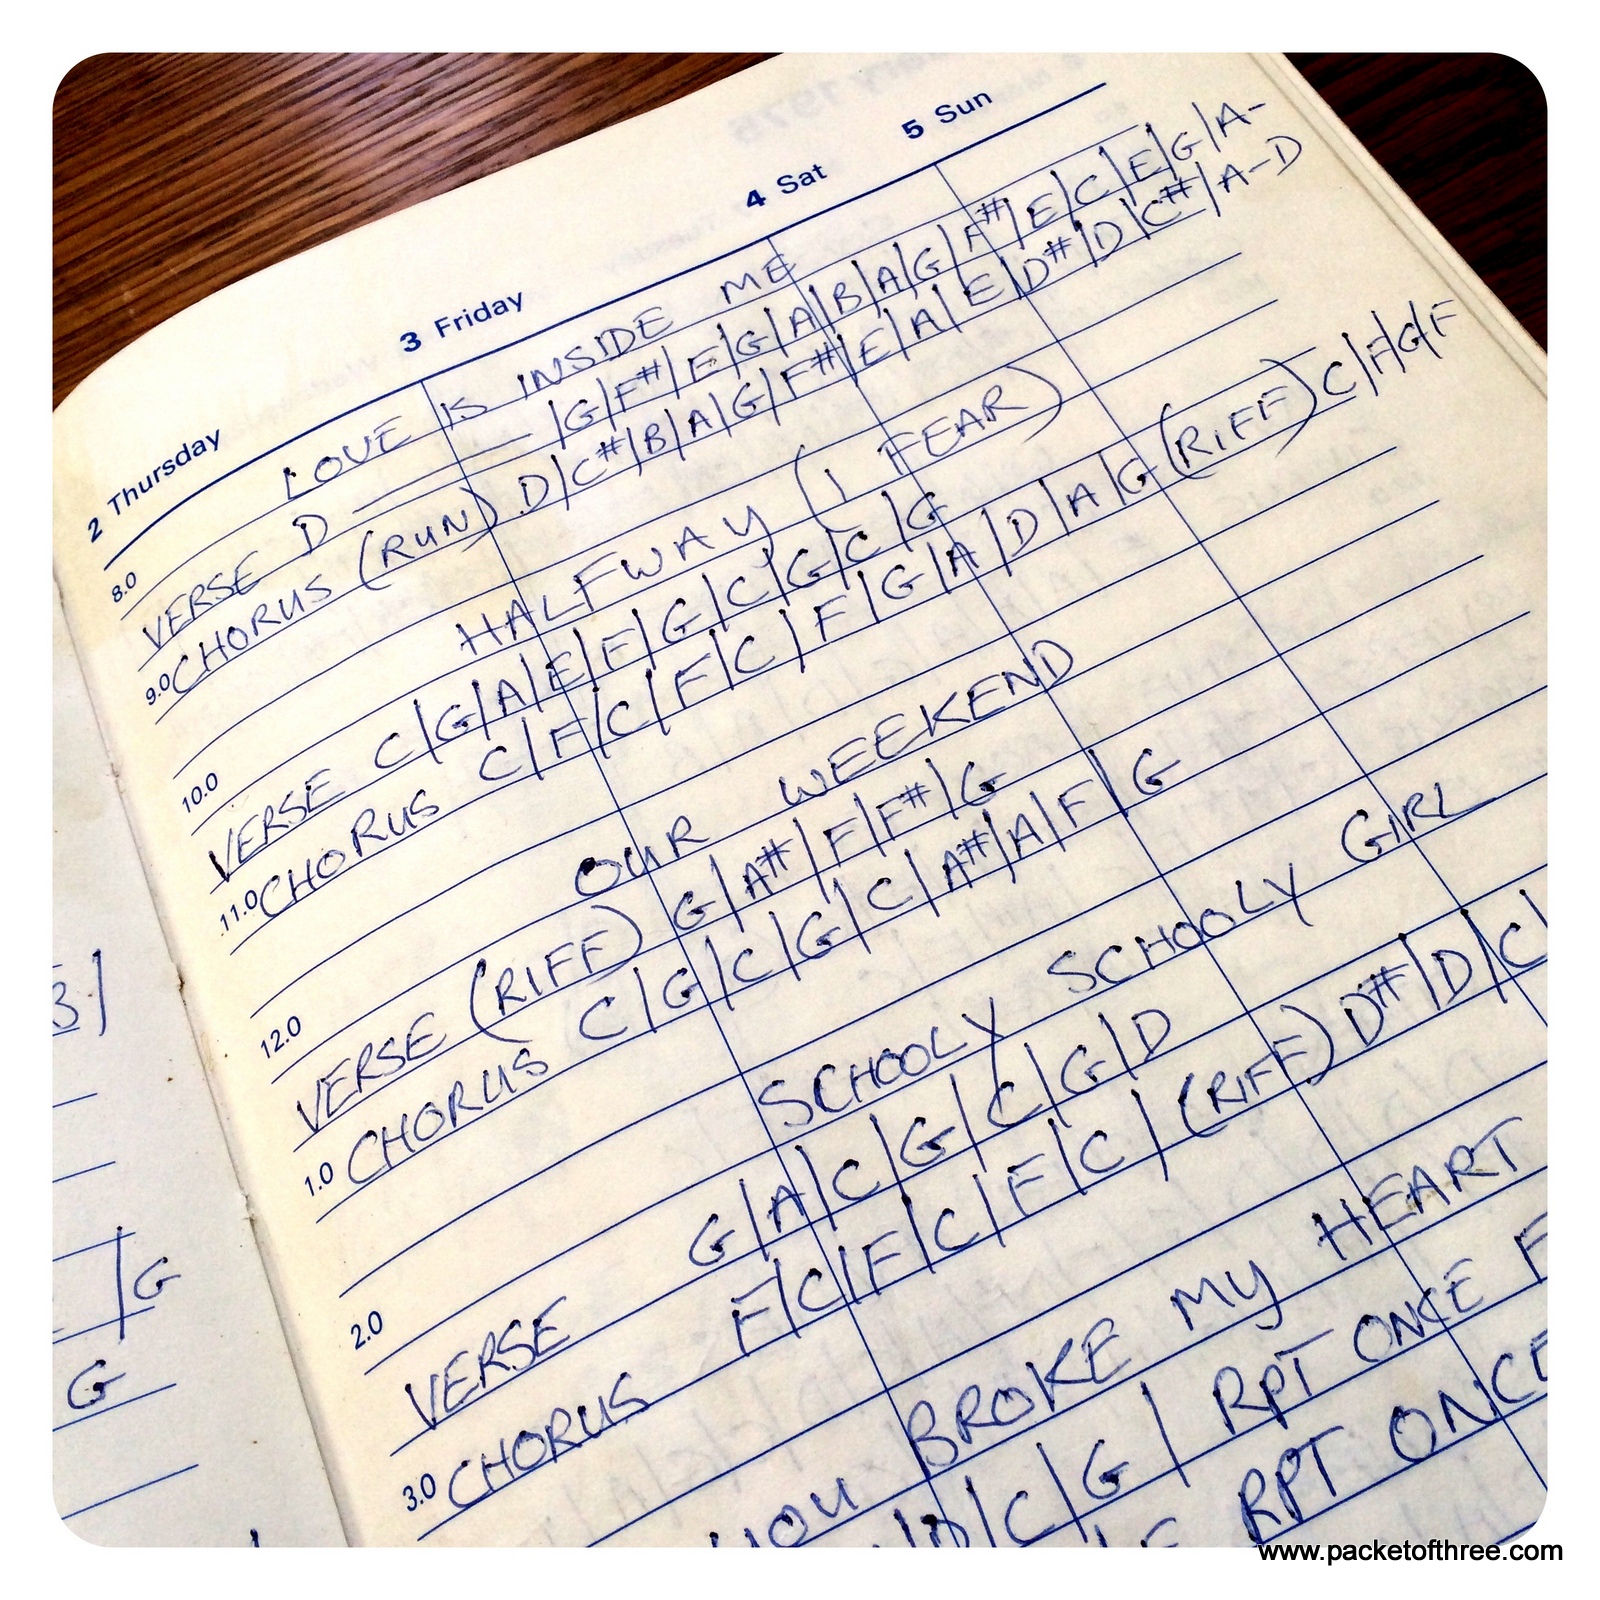 2 Thursday 3 Friday 4 Sat 5 Sun
LOVE IS INSIDE ME
8.0
VERSE D — — — | G | F# | E | G | A | B | A | G | F# | E | C | E | G | A-
9.0 CHORUS (RUN) D | C# | B | A | G | F# | E | A | E | D# | D | C# | A-D
HALFWAY (I FEAR)
10.0
VERSE C | G | A | E | F | G | C | G | C | G
11.0 CHORUS C | F | C | F | C | F | G | A | D | A | G (RIFF) C | F | G | F
OUR WEEKEND
12.0
VERSE (RIFF) G | A# | F | F# | G
1.0 CHORUS C | G | C | G | C | A# | A | F | G
SCHOOLY SCHOOLY GIRL
2.0
VERSE G | A | C | G | C | G | D
3.0 CHORUS F | C | F | C | F | C | (RIFF) D# | D | C |
YOU BROKE MY HEART
| D | C | G | RPT ONCE F
RPT ONCE
/ G
G
www.packetofthree.com